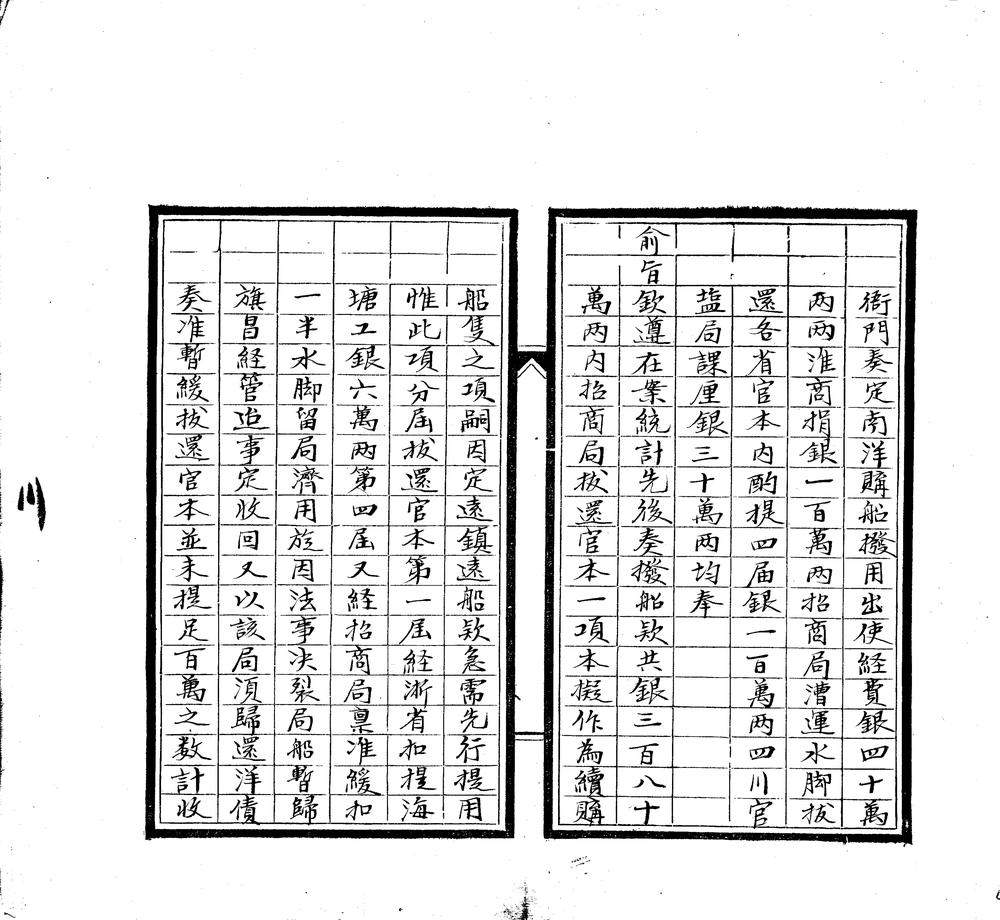 衙門奏定南洋購船撥用出使経費銀四十萬
两两淮商捐銀一百萬两招商局漕運水脚拔
還各省官本内酌提四届銀一百萬两四川官
塩局課厘銀三十萬两均奉
俞旨欽遵在案統計先後奏撥船欵共銀三百八十
萬两内招商局拔還官本一項本擬作為續購
船隻之項嗣因定遠鎮遠船欵急需先行提用
惟此項分屆拔還官本第一屆経浙省扣提海
塘工銀六萬两第四屆又経招商局稟准緩扣
一半水脚留局濟用旋因法事决裂局船暫歸
旗昌経管迨事定收回又以該局湏歸還洋債
奏准暫緩拔還官本並未提足百萬之数計收